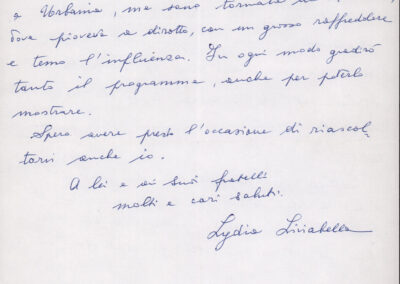 a Urbania, ma sono tornata
dove pioveva a dirotto, con un grosso raffreddore
e temo l'influenza. In ogni modo gradirò
tanto il programma, anche per poterlo
mostrare.
Spero avere presto l'occasione di riascol-
tarvi anche io.
A lei e ai suoi fratelli
molti e cari saluti.
Lydia